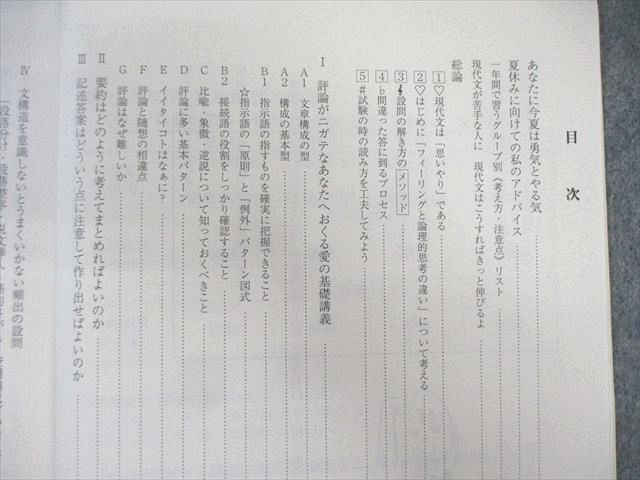 目次
あなたに今夏は勇気とやる気
夏休みに向けての私のアドバイス
一年間で習うグループ別《考え方・注意点》リスト
現代文が苦手な人に 現代文はこうすればきっと伸びるよ
総論
1♡現代文は「思いやり」である
2♡はじめに「フィーリングと論理的思考の違い」について考える
3設問の解き方のメソッド
4♭間違った答に到るプロセス
5#試験の時の読み方を工夫してみよう
Ⅰ 評論がニガテなあなたへおくる愛の基礎講義
A1 文章構成の型
A2 構成の基本型
B1 指示語の指すものを確実に把握できること
☆指示語の「原則」と「例外」パターン図式
B2 接続語の役割をしっかり確認すること
C 比喩・象徴・逆説について知っておくべきこと
D 評論に多い基本パターン
E イイタイコトはなぁに?
F 評論と随想の相違点
G 評論はなぜ難しいか
Ⅱ 要約はどのように考えてまとめればよいのか
Ⅲ 記述答案はどういう点に注意して作り出せばよいのか
Ⅳ 文構造を意識しないとうまくいかない頻出の設問